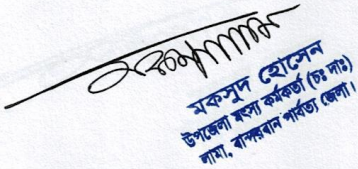 মকসুদ হোসেন
উপজেলা মৎস্য কর্মকর্তা (চঃ দাঃ)
লামা, বান্দরবান পার্বত্য জেলা।